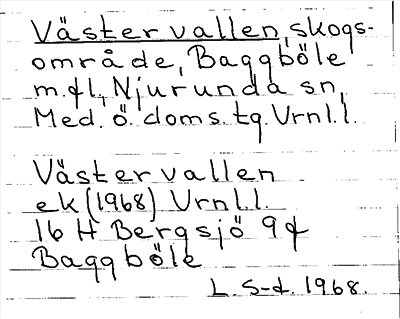 Västervallen, skogs-
område, Baggböle
m.fl., Njurunda sn,
Med. ö. doms.tg. Vrnl.l.
Västervallen
ek (1968) Vrnl.l.
16 H Bergsjö 9 f
Baggböle
L. S-d. 1968.